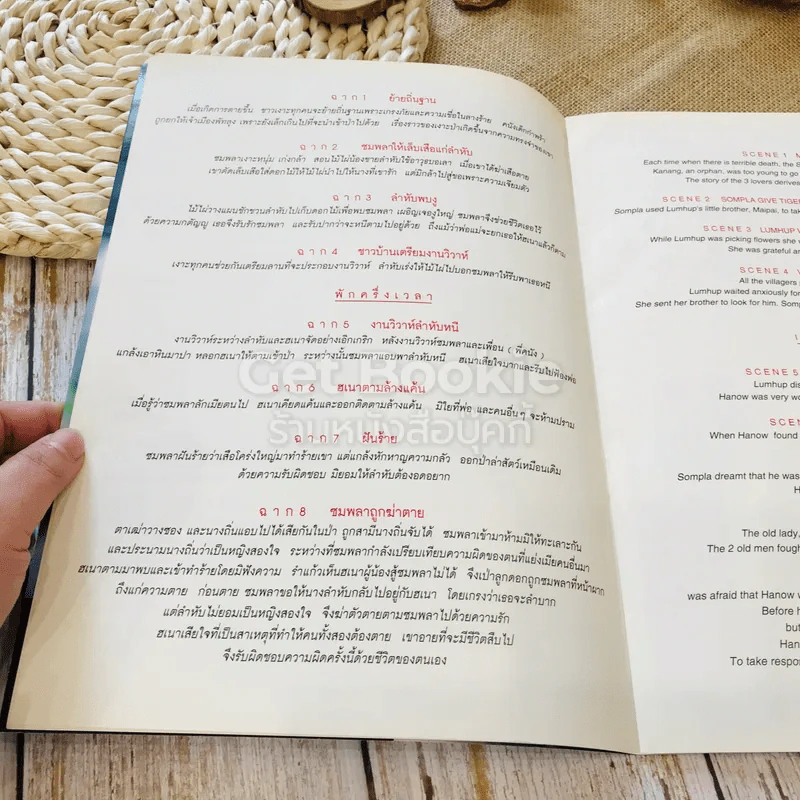 ฉาก 1 ย้ายถิ่นฐาน
เมื่อเกิดการตายขึ้น ชาวเงาะทุกคนจะย้ายถิ่นฐานเพราะเกรงภัยและความเชื่อในลางร้าย คนังเด็กกำพร้า
ถูกยกให้เจ้าเมืองพัทลุง เพราะยังเด็กเกินไปที่จะนำเข้าป่าไปด้วย เรื่องราวของเงาะป่าเกิดขึ้นจากความทรงจำของเขา
ฉาก 2 ซมพลาให้เล็บเสือแก่ลำหับ
ซมพลาเงาะหนุ่ม เก่งกล้า สอนไม้ไผ่น้องชายลำหับใช้อาวุธบอเลา เมื่อเขาได้ฆ่าเสือตาย
เขาตัดเล็บเสือใส่ดอกไม้ให้ไม้ไผ่นำไปให้นางที่เขารัก แต่มิกล้าไปสู่ขอเพราะความเจียมตัว
ฉาก 3 ลำหับพบงู
ไม้ไผ่วางแผนชักชวนลำหับไปเก็บดอกไม้เพื่อพบซมพลา เผอิญเจองูใหญ่ ซมพลาจึงช่วยชีวิตเธอไว้
ด้วยความกตัญญู เธอจึงรับรักซมพลา และรับปากว่าจะหนีตามไปอยู่ด้วย ถึงแม้ว่าพ่อแม่จะยกเธอให้ฮเนาแล้วก็ตาม
ฉาก 4 ชาวบ้านเตรียมงานวิวาห์
เงาะทุกคนช่วยกันเตรียมลานที่จะประกอบงานวิวาห์ ลำหับเร่งให้ไม้ไผ่ไปบอกซมพลาให้รีบพาเธอหนี
พักครึ่งเวลา
ฉาก 5 งานวิวาห์ลำหับหนี
งานวิวาห์ระหว่างลำหับและฮเนาจัดอย่างเอิกเกริก หลังงานวิวาห์ซมพลาและเพื่อน (พี่คนัง)
แกล้งเอาหินมาปา หลอกฮเนาให้ตามเข้าป่า ระหว่างนั้นซมพลาแอบพาลำหับหนี ฮเนาเสียใจมากและรีบไปฟ้องพ่อ
ฉาก 6 ฮเนาตามล้างแค้น
เมื่อรู้ว่าซมพลาลักเมียตนไป ฮเนาเคียดแค้นและออกติดตามล้างแค้น มิไยที่พ่อ และคนอื่นๆ จะห้ามปราม
ฉาก 7 ฝันร้าย
ซมพลาฝันร้ายว่าเสือโคร่งใหญ่มาทำร้ายเขา แต่แกล้งหักหาญความกลัว ออกป่าล่าสัตว์เหมือนเดิม
ด้วยความรับผิดชอบ มิยอมให้ลำหับต้องอดอยาก
ฉาก 8 ซมพลาถูกฆ่าตาย
ตาเฒ่าวางซอง และนางถิ่นแอบไปได้เสียกันในป่า ถูกสามีนางถิ่นจับได้ ซมพลาเข้ามาห้ามมิให้ทะเลาะกัน
และประนามนางถิ่นว่าเป็นหญิงสองใจ ระหว่างที่ซมพลากำลังเปรียบเทียบความผิดของตนที่แย่งเมียคนอื่นมา
ฮเนาตามมาพบและเข้าทำร้ายโดยมิฟังความ รำแก้วเห็นฮเนาผู้น้องสู้ซมพลาไม่ได้ จึงเป่าลูกดอกถูกซมพลาที่หน้าผาก
ถึงแก่ความตาย ก่อนตาย ซมพลาขอให้นางลำหับกลับไปอยู่กับฮเนา โดยเกรงว่าเธอจะลำบาก
แต่ลำหับไม่ยอมเป็นหญิงสองใจ จึงฆ่าตัวตายตามซมพลาไปด้วยความรัก
ฮเนาเสียใจที่เป็นสาเหตุที่ทำให้คนทั้งสองต้องตาย เขาอายที่จะมีชีวิตสืบไป
จึงรับผิดชอบความผิดครั้งนี้ด้วยชีวิตของตนเอง
SCENE 1 M
Each time when there is terrible death, the S
Kanang, an orphan, was too young to go
The story of the 3 lovers derives
SCENE 2 SOMPLA GIVE TIGE
Sompla used Lumhup's little brother, Maipai, to tak
SCENE 3 LUMHUP
While Lumhup was picking flowers she
She was grateful an
SCENE 4 V
All the villagers
Lumhup waited anxiously for
She sent her brother to look for him. Somp
SCENE 5
Lumhup dis
Hanow was very wo
SCEN
When Hanow found
Sompla dreamt that he was
H
The old lady,
The 2 old men fough
was afraid that Hanow w
Before h
but
Han
To take respon
Get Bookie
ร้านหนังสือบุคกี้